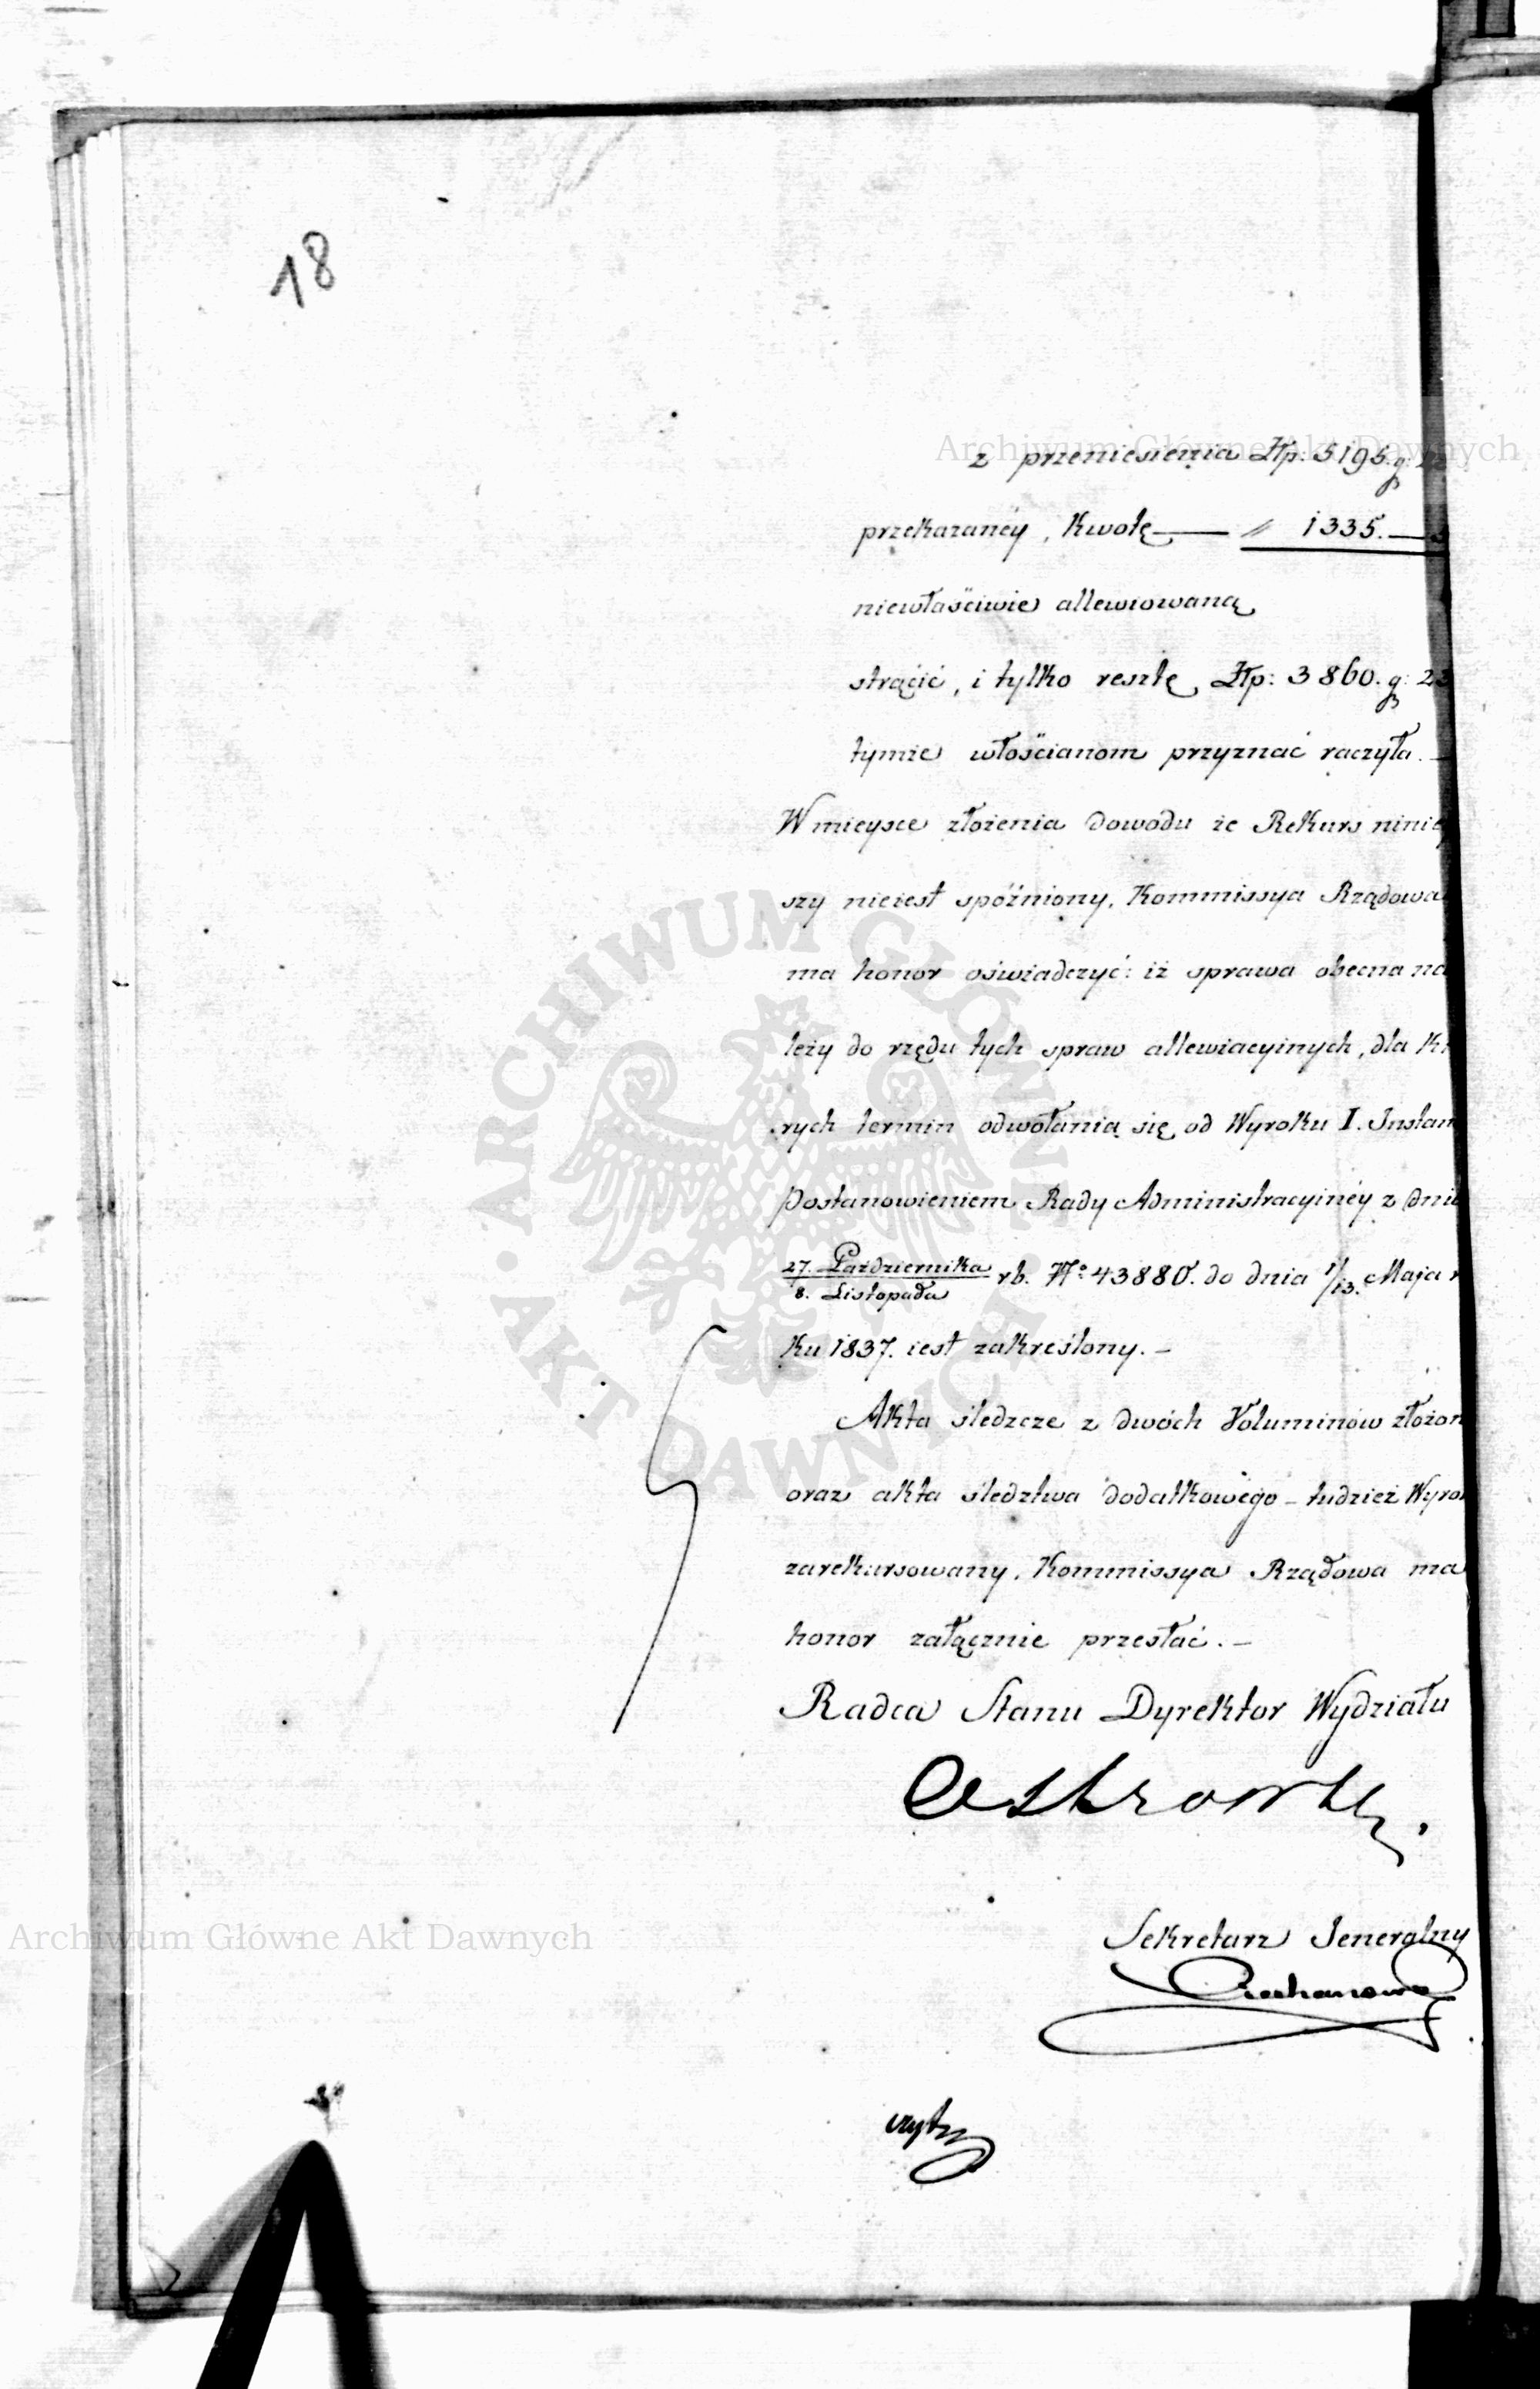 18
z przeniesienia Złp: 5195. g:
przekazanéy, Kwotę — " 1335. —
niewłaściwie allewiowaną
strącić, i tylko resztę Złp: 3860. g: 23
tymże włościanom przyznać raczyła. —
W mieysce złożenia dowodu że Rekurs niniey
szy nieiest spóźniony, Kommissya Rządowa
ma honor oświadczyć: iż sprawa obecna na
leży do rzędu tych spraw allewiacyinych, dla Kt
rych termin odwołania się od Wyroku I. Instan
Postanowieniem Rady Administracyinéy z dnia
27. Października
8. Listopada rb. No 43880. do dnia 1/13. Maja r
Ku 1837. iest zakreślony. —
Akta śledcze z dwóch Voluminów złożon
oraz akta śledztwa dodatkowego — tudzież Wyrok
zarekursowany, Kommissya Rządowa ma
honor załącznie przesłać. —
Radca Stanu Dyrektor Wydziału
Sekretarz Jeneralny
Archiwum Główne Akt Dawnych
Archiwum Główne Akt Dawnych
ARCHIWUM GŁÓWNE • AKT DAWNYCH •